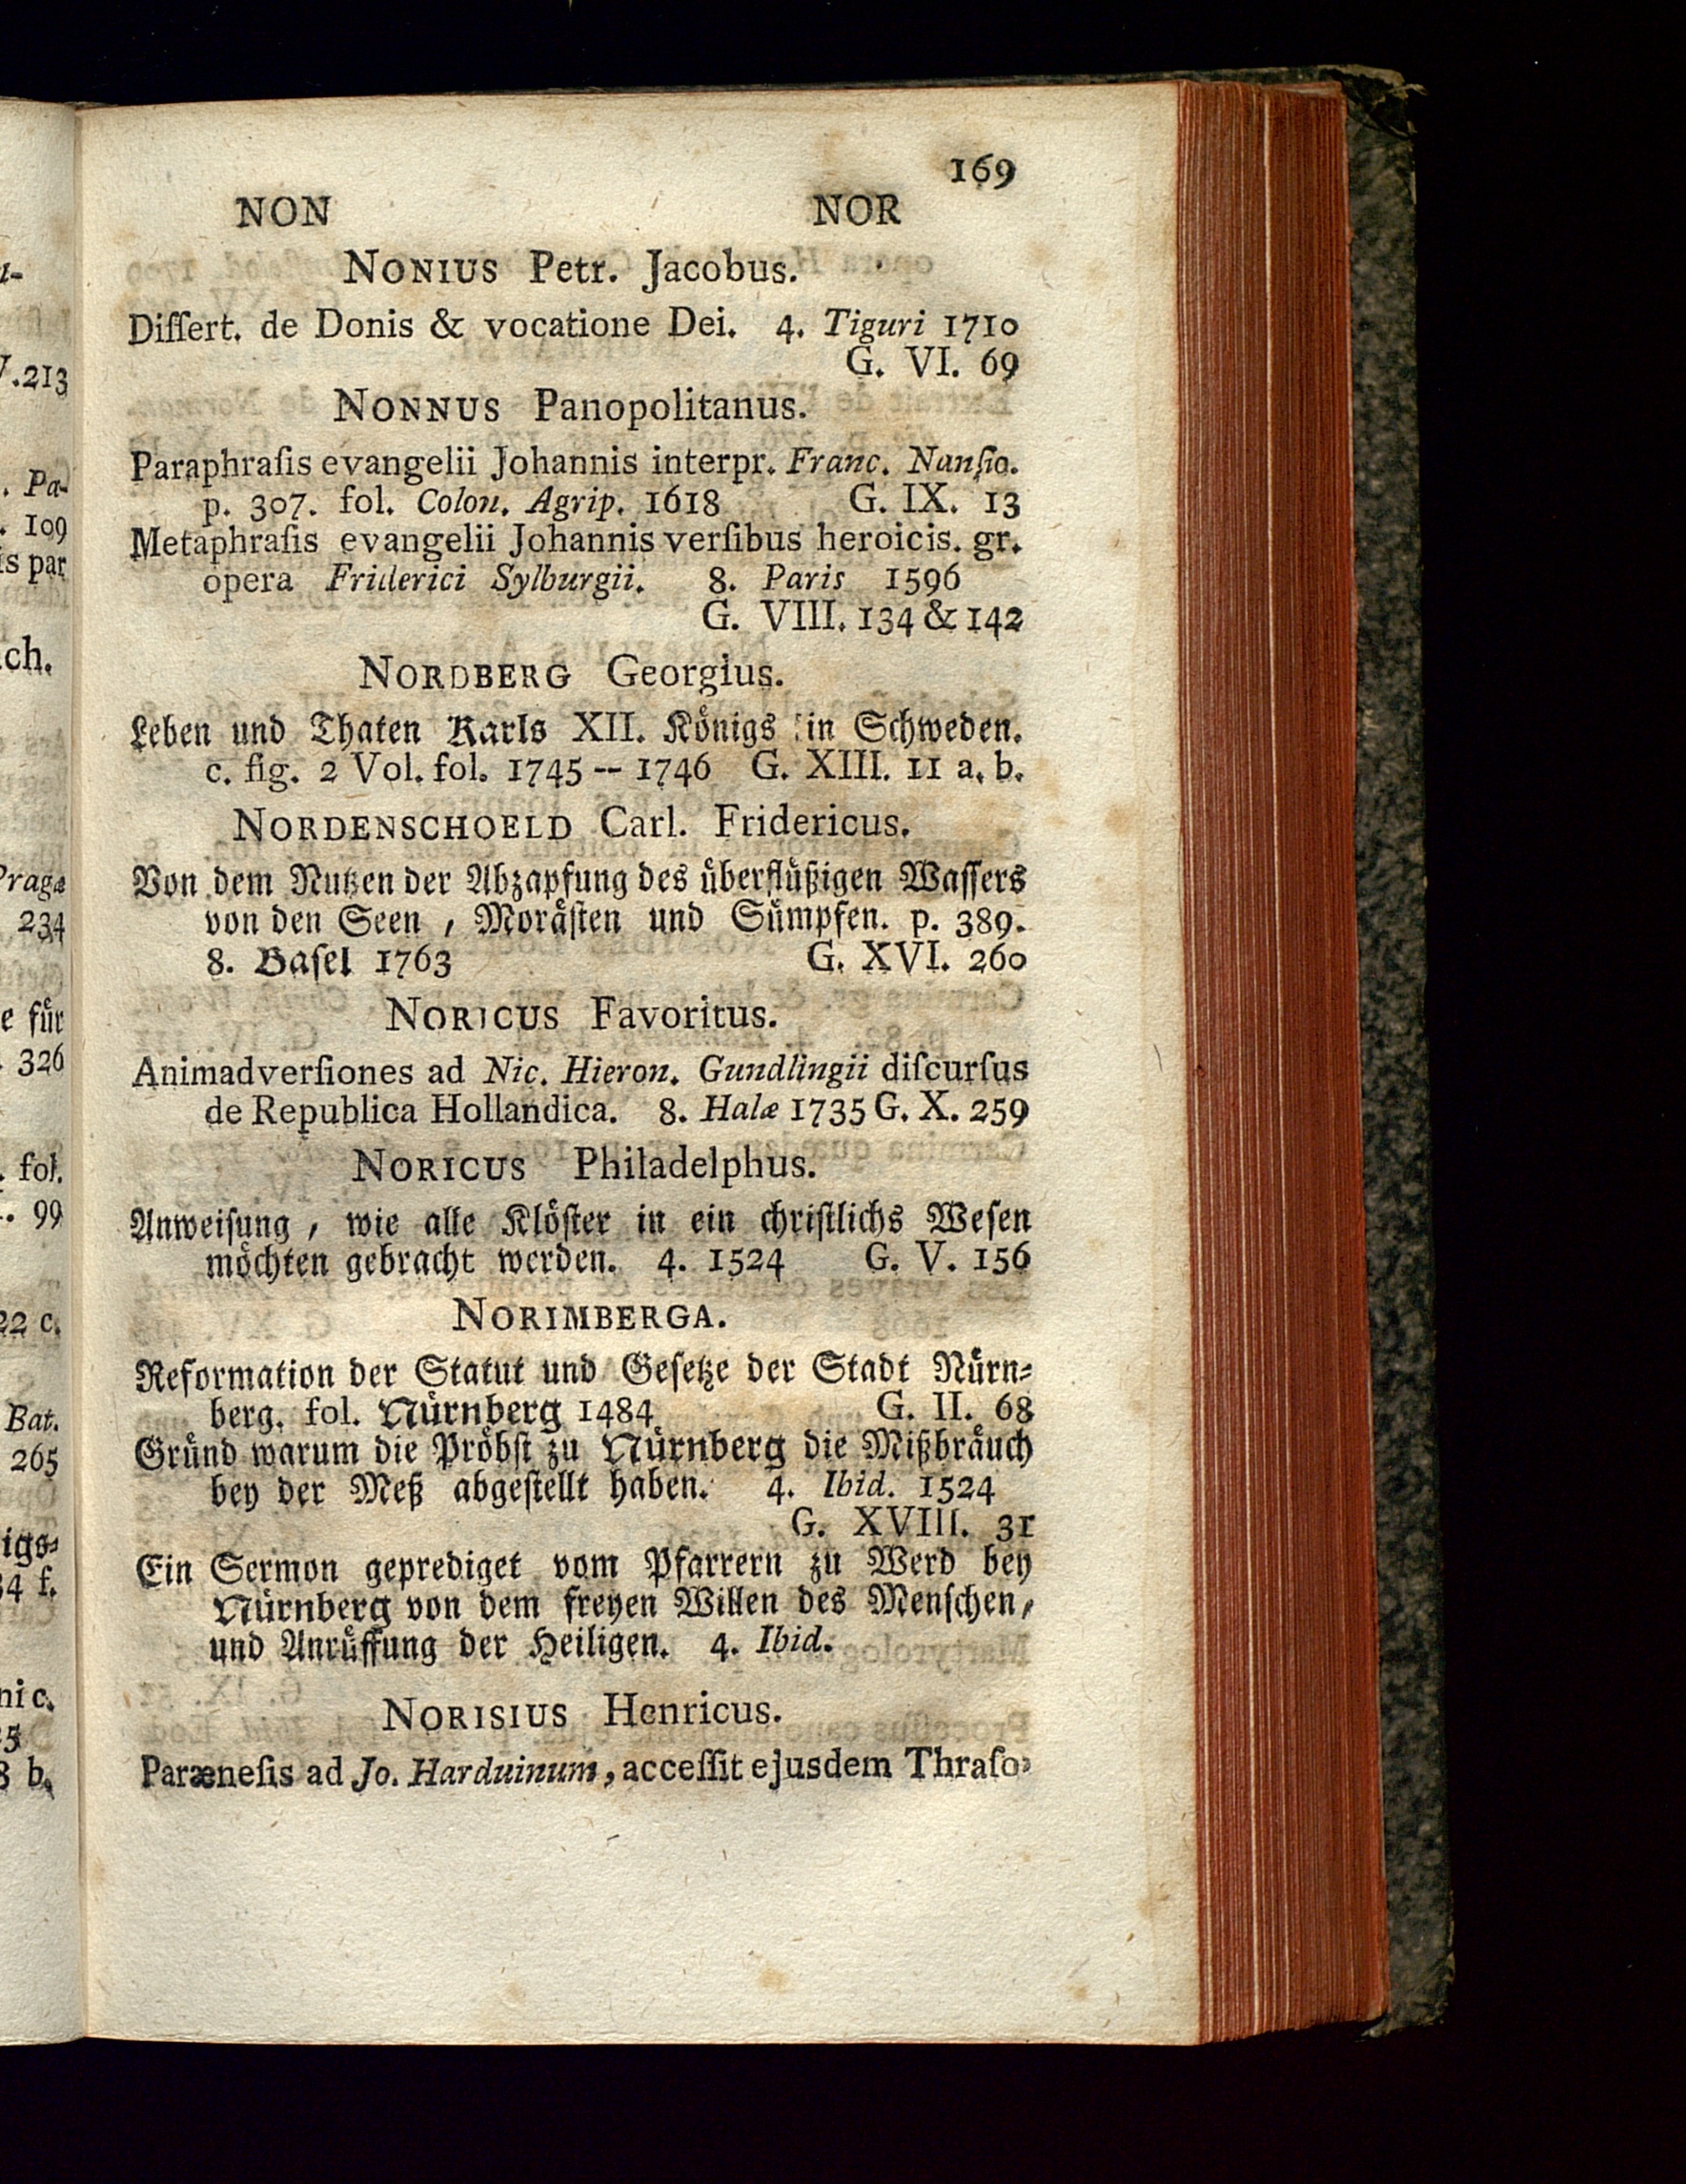 169
NON NOR
NONIUS Petr. Jacobus.
Diſſert. de Donis & vocatione Dei. 4. Tiguri 1710
G. VI. 69
NONNUS Panopolitanus.
Paraphraſis evangelii Johannis interpr. Franc. Nanſio.
p. 307. fol. Colon. Agrip. 1618 G. IX. 13
Metaphraſis evangelii Johannis verſibus heroicis. gr.
opera Friderici Sylburgii. 8. Paris 1596
G. VIII. 134 & 142
NORDBERG Georgius.
Leben und Thaten Karls XII. Königs in Schweden.
c. fig. 2 Vol. fol. 1745 -- 1746 G. XIII. 11 a. b.
NORDENSCHOELD Carl. Fridericus.
Von dem Nutzen der Abzapfung des überflüßigen Waſſers
von den Seen, Moräſten und Sümpfen. p. 389.
8. Baſel 1763 G. XVI. 260
NORICUS Favoritus.
Animadverſiones ad Nic. Hieron. Gundlingii diſcurſus
de Republica Hollandica. 8. Halæ 1735 G. X. 259
NORICUS Philadelphus.
Anweiſung, wie alle Klöſter in ein chriſtlichs Weſen
möchten gebracht werden. 4. 1524 G. V. 156
NORIMBERGA.
Reformation der Statut und Geſetze der Stadt Nürn-
berg. fol. Nürnberg 1484 G. II. 68
Gründ warum die Pröbſt zu Nürnberg die Mißbräuch
bey der Meß abgeſtellt haben. 4. Ibid. 1524
G. XVIII. 31
Ein Sermon geprediget vom Pfarrern zu Werd bey
Nürnberg von dem freyen Willen des Menſchen,
und Anrüffung der Heiligen. 4. Ibid.
NORISIUS Henricus.
Parænefis ad Jo. Harduinum, acceſſit ejusdem Thraſo-